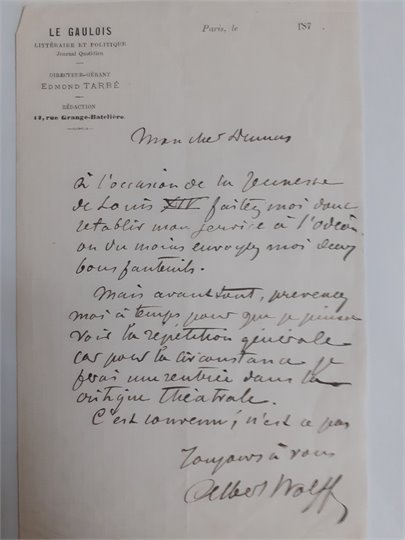 LE GAULOIS
LITTÉRAIRE ET POLITIQUE
Journal Quotidien
DIRECTEUR-GÉRANT
EDMOND TARBÉ
RÉDACTION
12, rue Grange-Batelière.
Paris, le 187 .
Mon cher Dumas
à l'occasion de la Jeunesse
de Louis XIV faites moi donc
retablir mon service à l'Odéon
ou du moins envoyez moi deux
bons fauteuils.
Mais avant tout, prevenez
moi à temps pour que je puisse
voir la répétition générale
car pour la circonstance je
ferai une rentrée dans la
critique théatrale.
C'est convenu, n'est ce pas
Toujours à vous
Albert Wolff